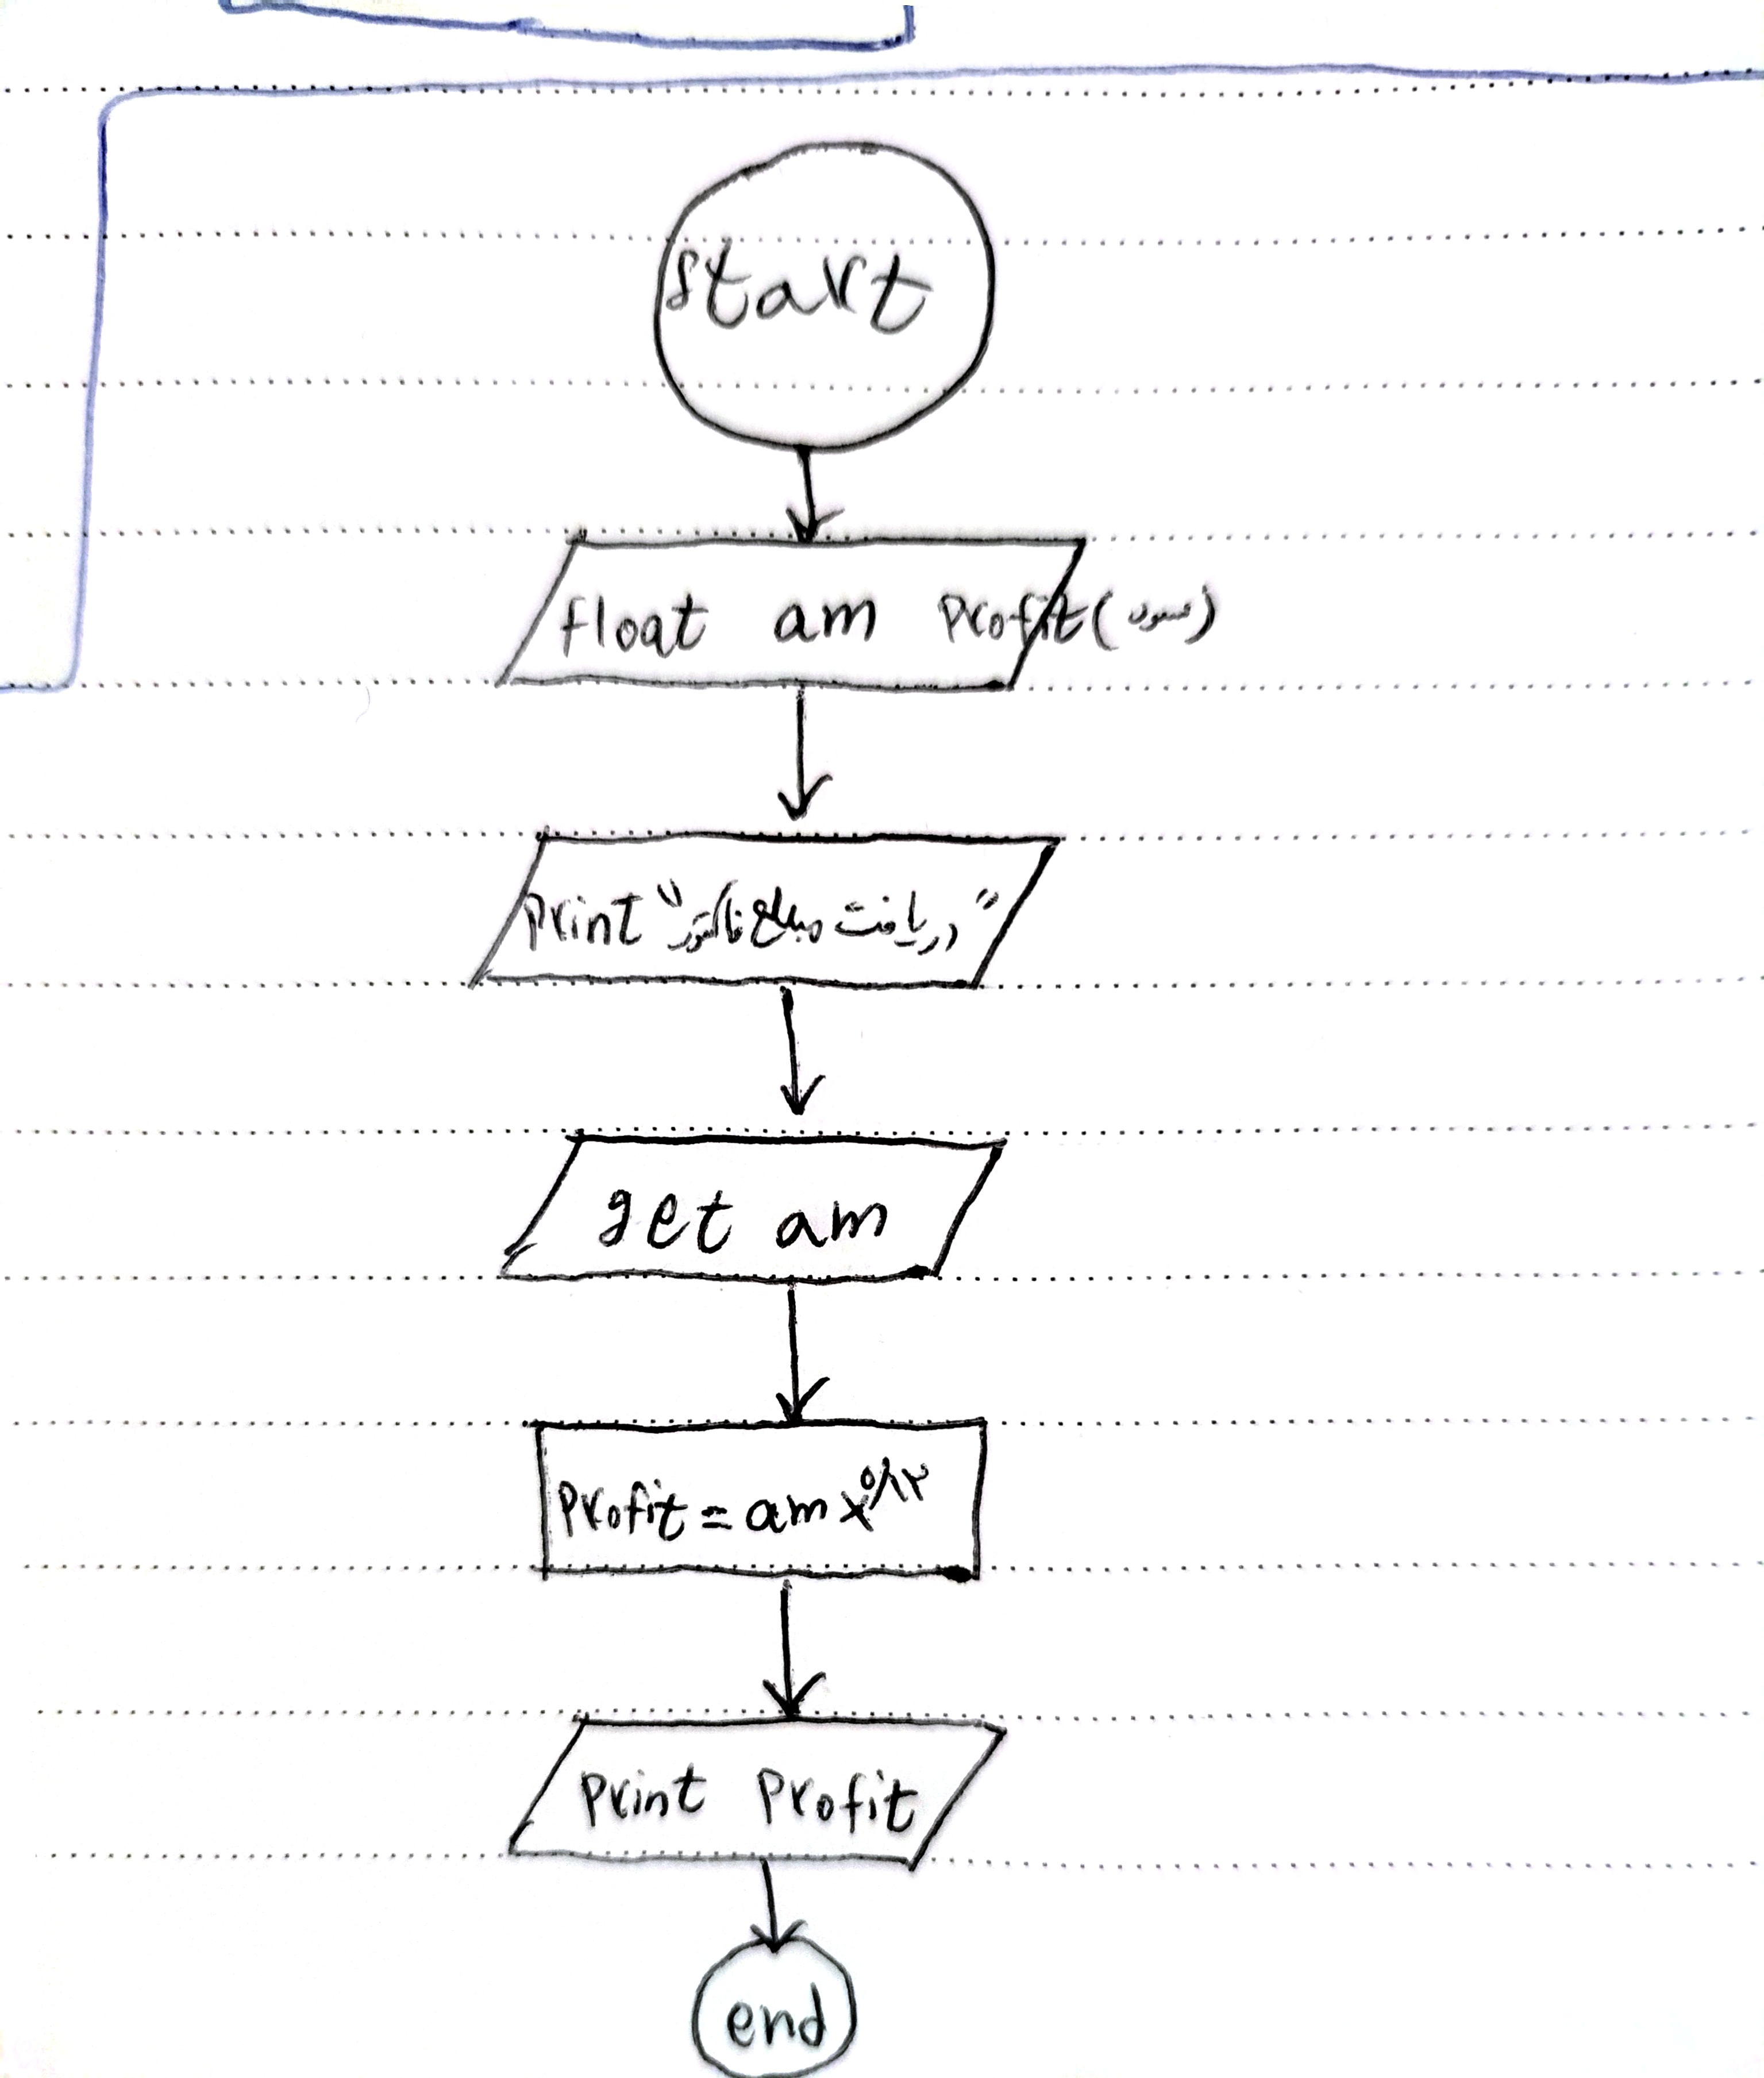 start
float am Profit (سود)
print "دریافت مبلغ فاکتور"
get am
Profit = am x ۰/۲
print Profit
end